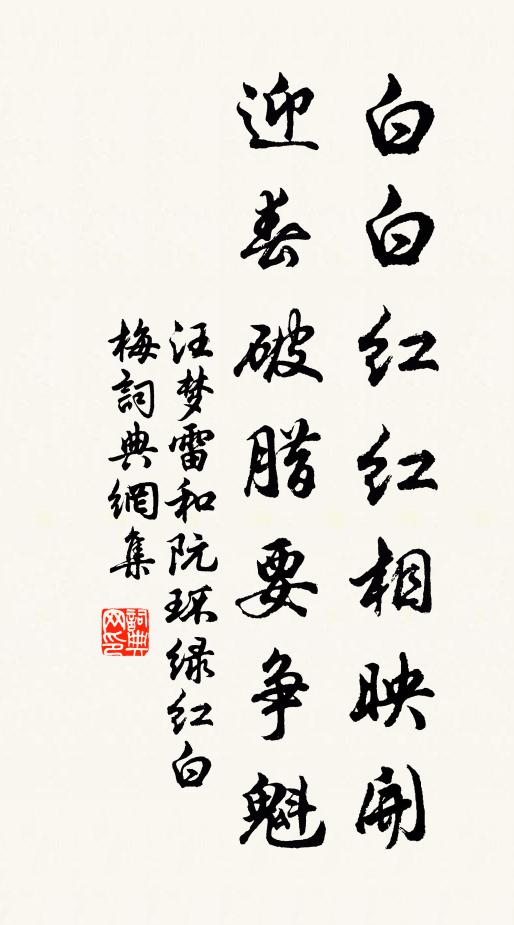 白白红红相映開
迎春破腊要争魁
汪梦雷和阮环绿红白
梅詞典網集
詞典网印